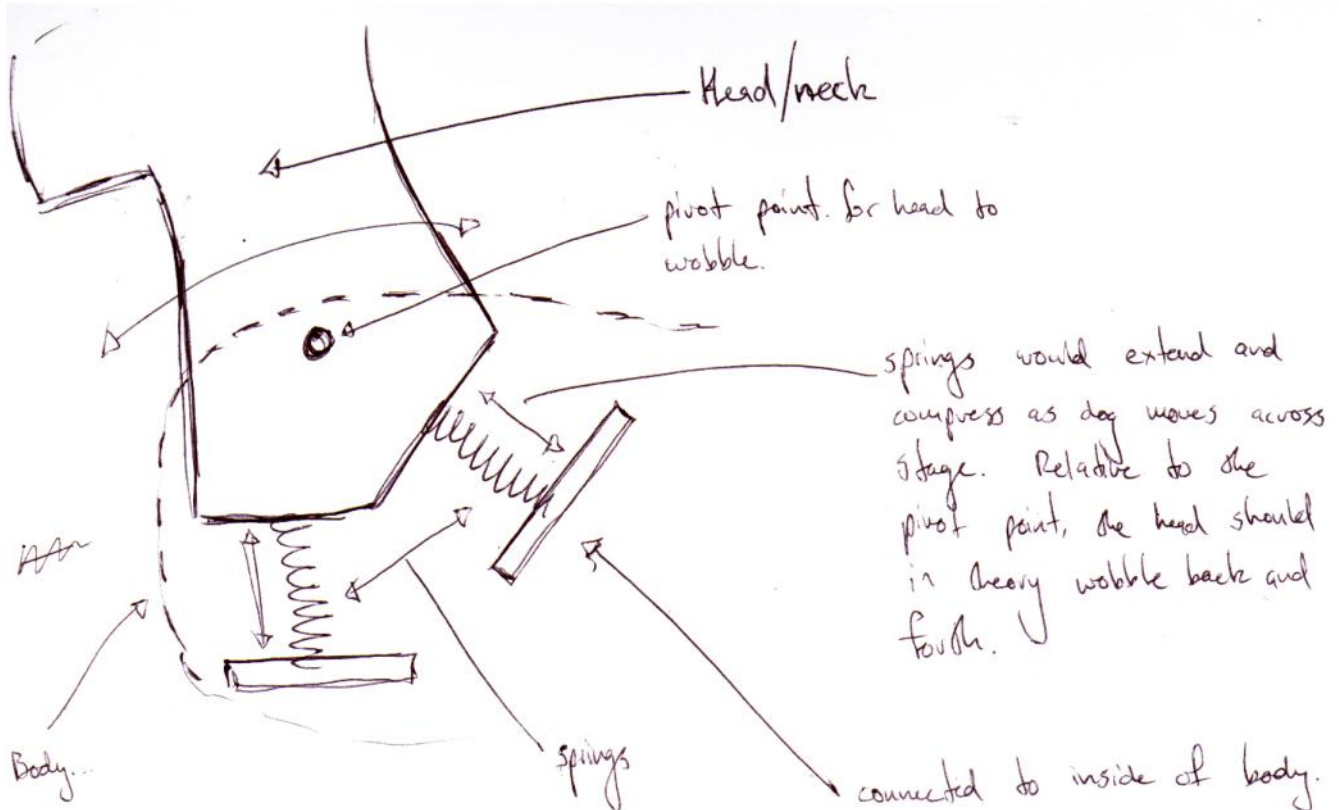 Head/neck
pivot point. for head to
wobble.
springs would extend and
compress as dog moves across
stage. Relative to the
pivot point, the head should
in theory wobble back and
fourth.
Body...
springs
connected to inside of body.